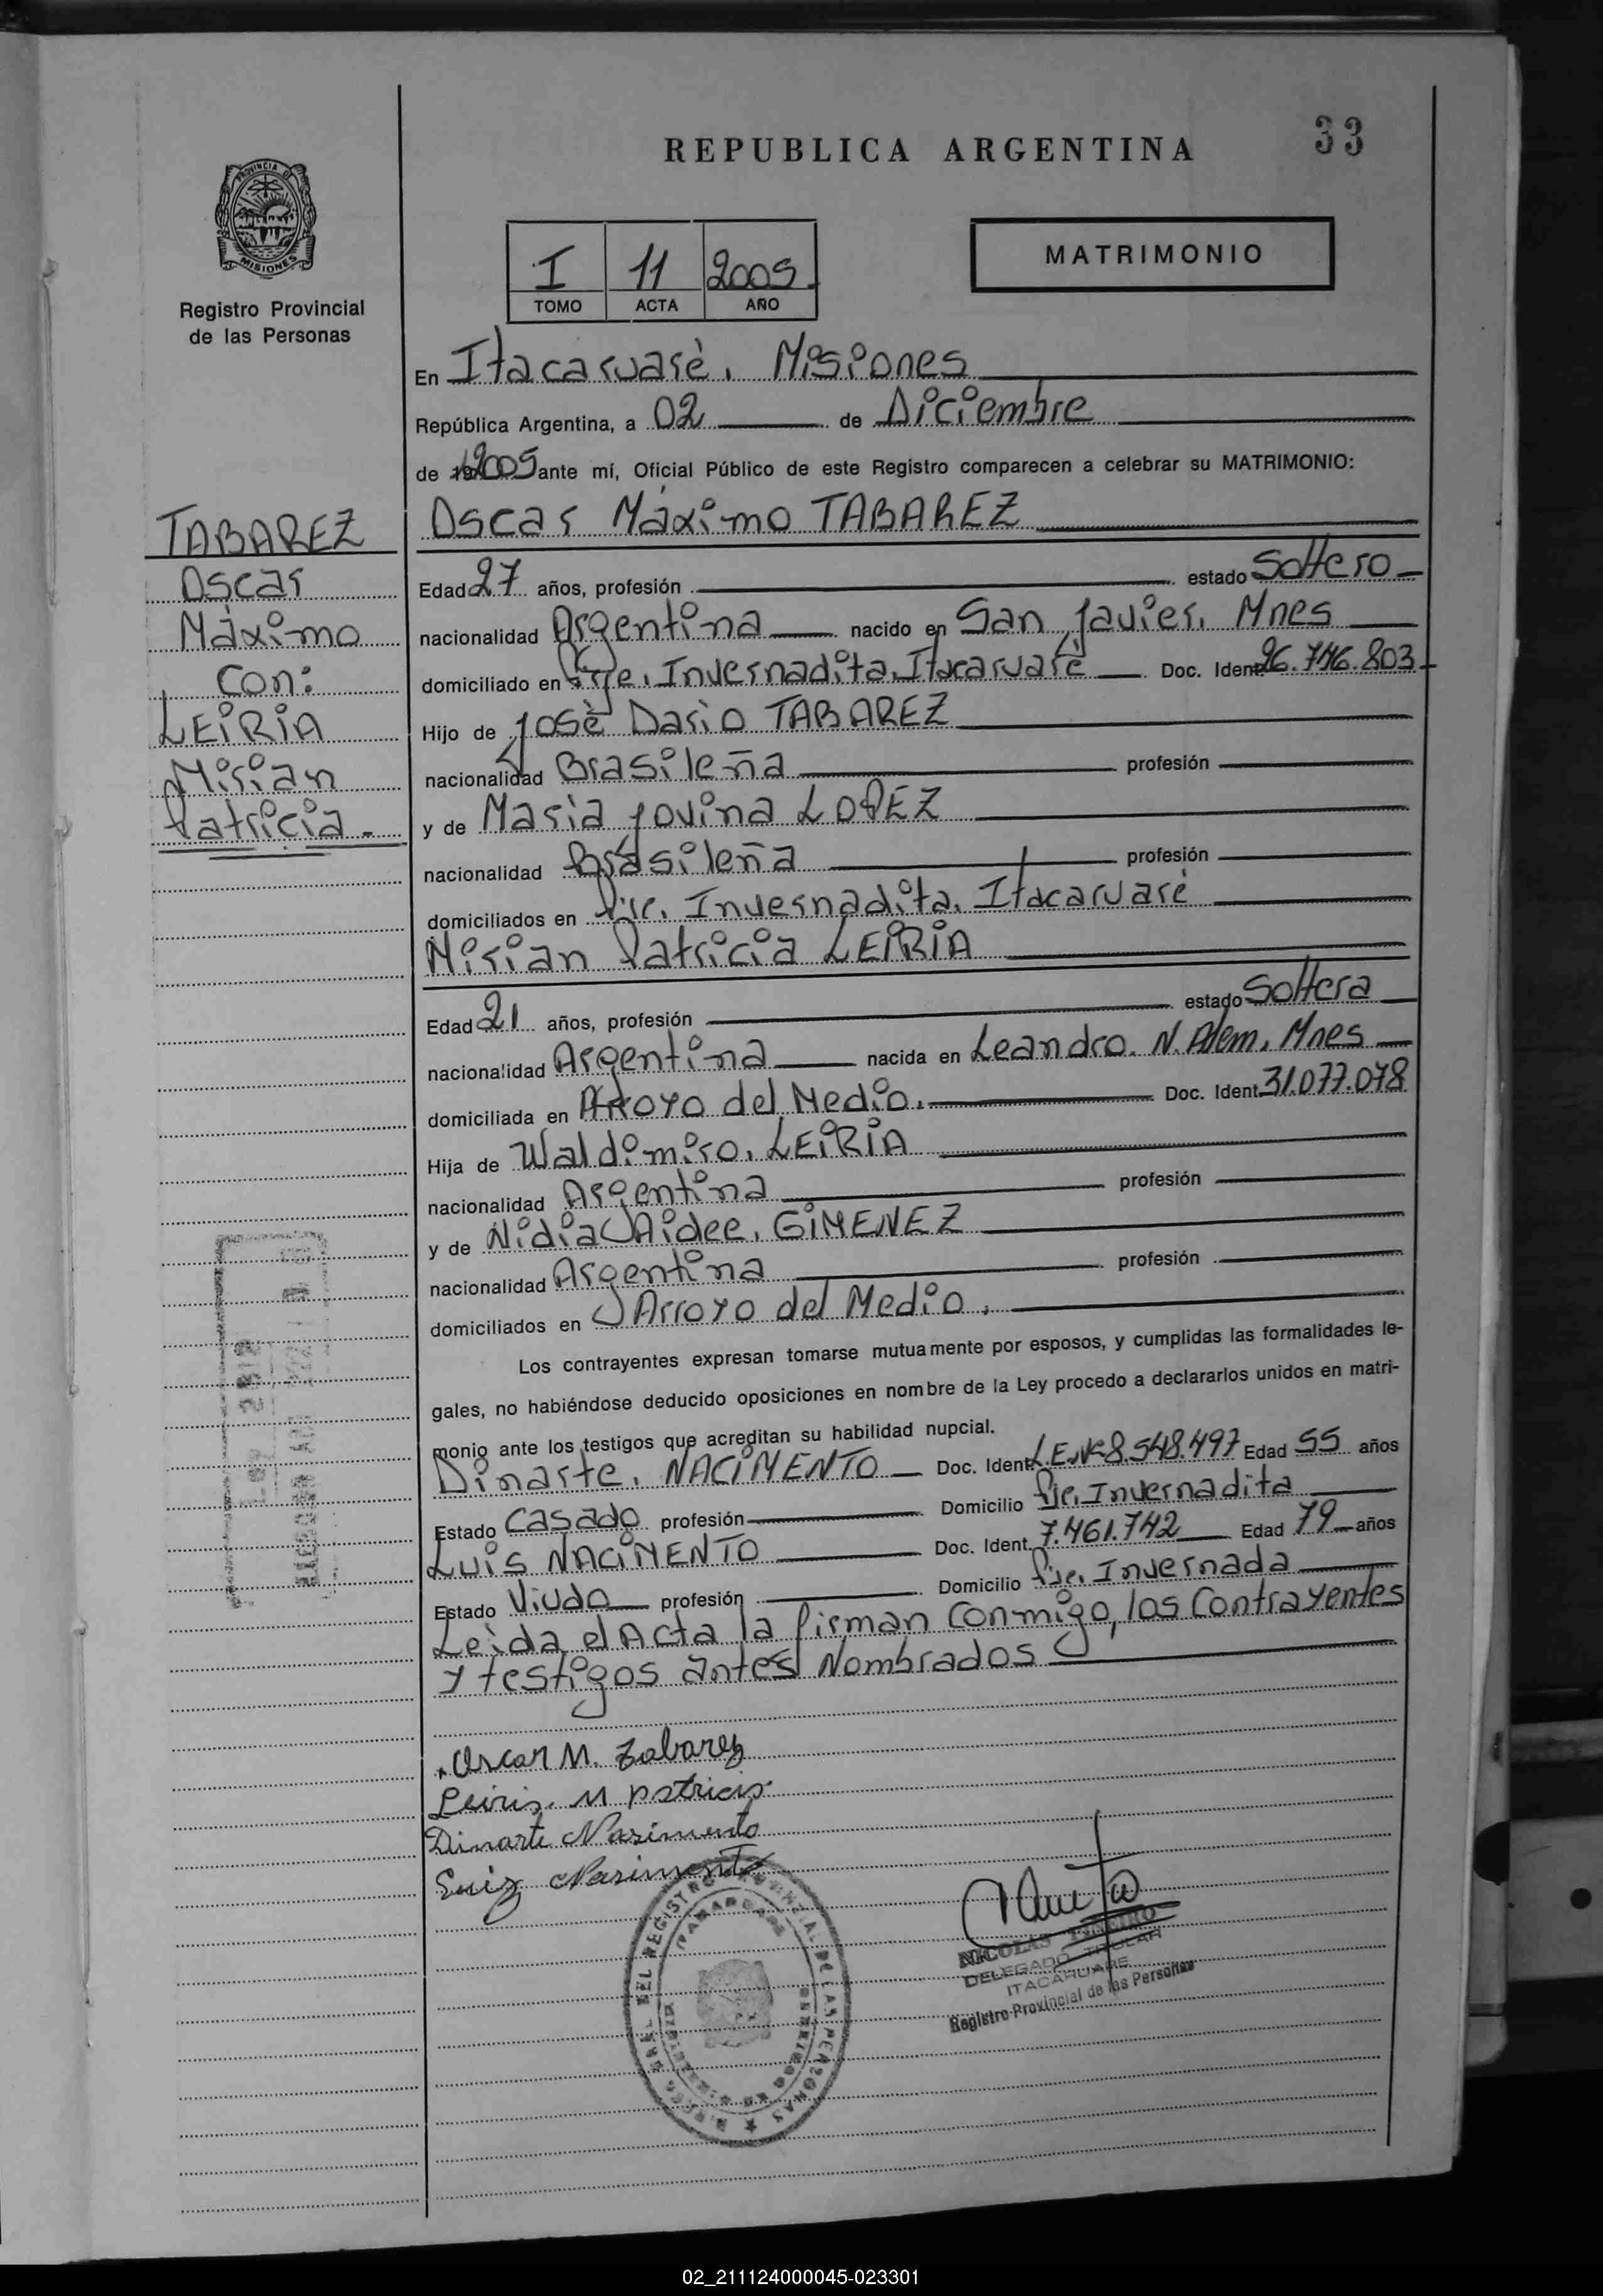 33
REPUBLICA ARGENTINA
PROVINCIA DE
MISIONES
Registro Provincial
de las Personas
I 11 2005
TOMO ACTA AÑO
MATRIMONIO
En Itacaruarè, Misiones
República Argentina, a 02 de Diciembre
de 2005 ante mí, Oficial Público de este Registro comparecen a celebrar su MATRIMONIO:
TABAREZ
Oscar
Máximo
Con:
LEIRIA
Mirian
Patricia.-
Oscar Máximo TABAREZ
Edad 27 años, profesión estado Soltero
nacionalidad Argentina nacido en San Javier, Mnes
domiciliado en Pje. Invernadita, Itacaruarè Doc. Ident. 26.746.803
Hijo de Josè Dario TABAREZ
nacionalidad Brasileña profesión
y de Maria Jovina LOPEZ
nacionalidad Brasileña profesión
domiciliados en Pje. Invernadita, Itacaruarè
Mirian Patricia LEIRIA
Edad 21 años, profesión estado Soltera
nacionalidad Argentina nacida en Leandro. N. Alem, Mnes
domiciliada en Arroyo del Medio. Doc. Ident. 31.077.078
Hija de Waldimiro, LEIRIA
nacionalidad Argentina profesión
y de Nidia Aidee, GIMENEZ
nacionalidad Argentina profesión
domiciliados en Arroyo del Medio.
Los contrayentes expresan tomarse mutuamente por esposos, y cumplidas las formalidades le-
gales, no habiéndose deducido oposiciones en nombre de la Ley procedo a declararlos unidos en matri-
monio ante los testigos que acreditan su habilidad nupcial.
Dinarte, NACIMENTO Doc. Ident. L.E.Nº 8.548.497 Edad 55 años
Estado Casado profesión Domicilio Pje. Invernadita
Luis NACIMENTO Doc. Ident. 7.461.742 Edad 79 años
Estado Viudo profesión Domicilio Pje. Invernada
Leìda el Acta la firman Conmigo, los Contrayentes
y testigos antes Nombrados
Oscar M. Tabarez
Leiria M Patricia
Dinarte Nasimento
Luiz Nasimento
NICOLAS PIÑEIRO
DELEGADO TITULAR
ITACARUARE
Registro Provincial de las Personas
02_211124000045-023301